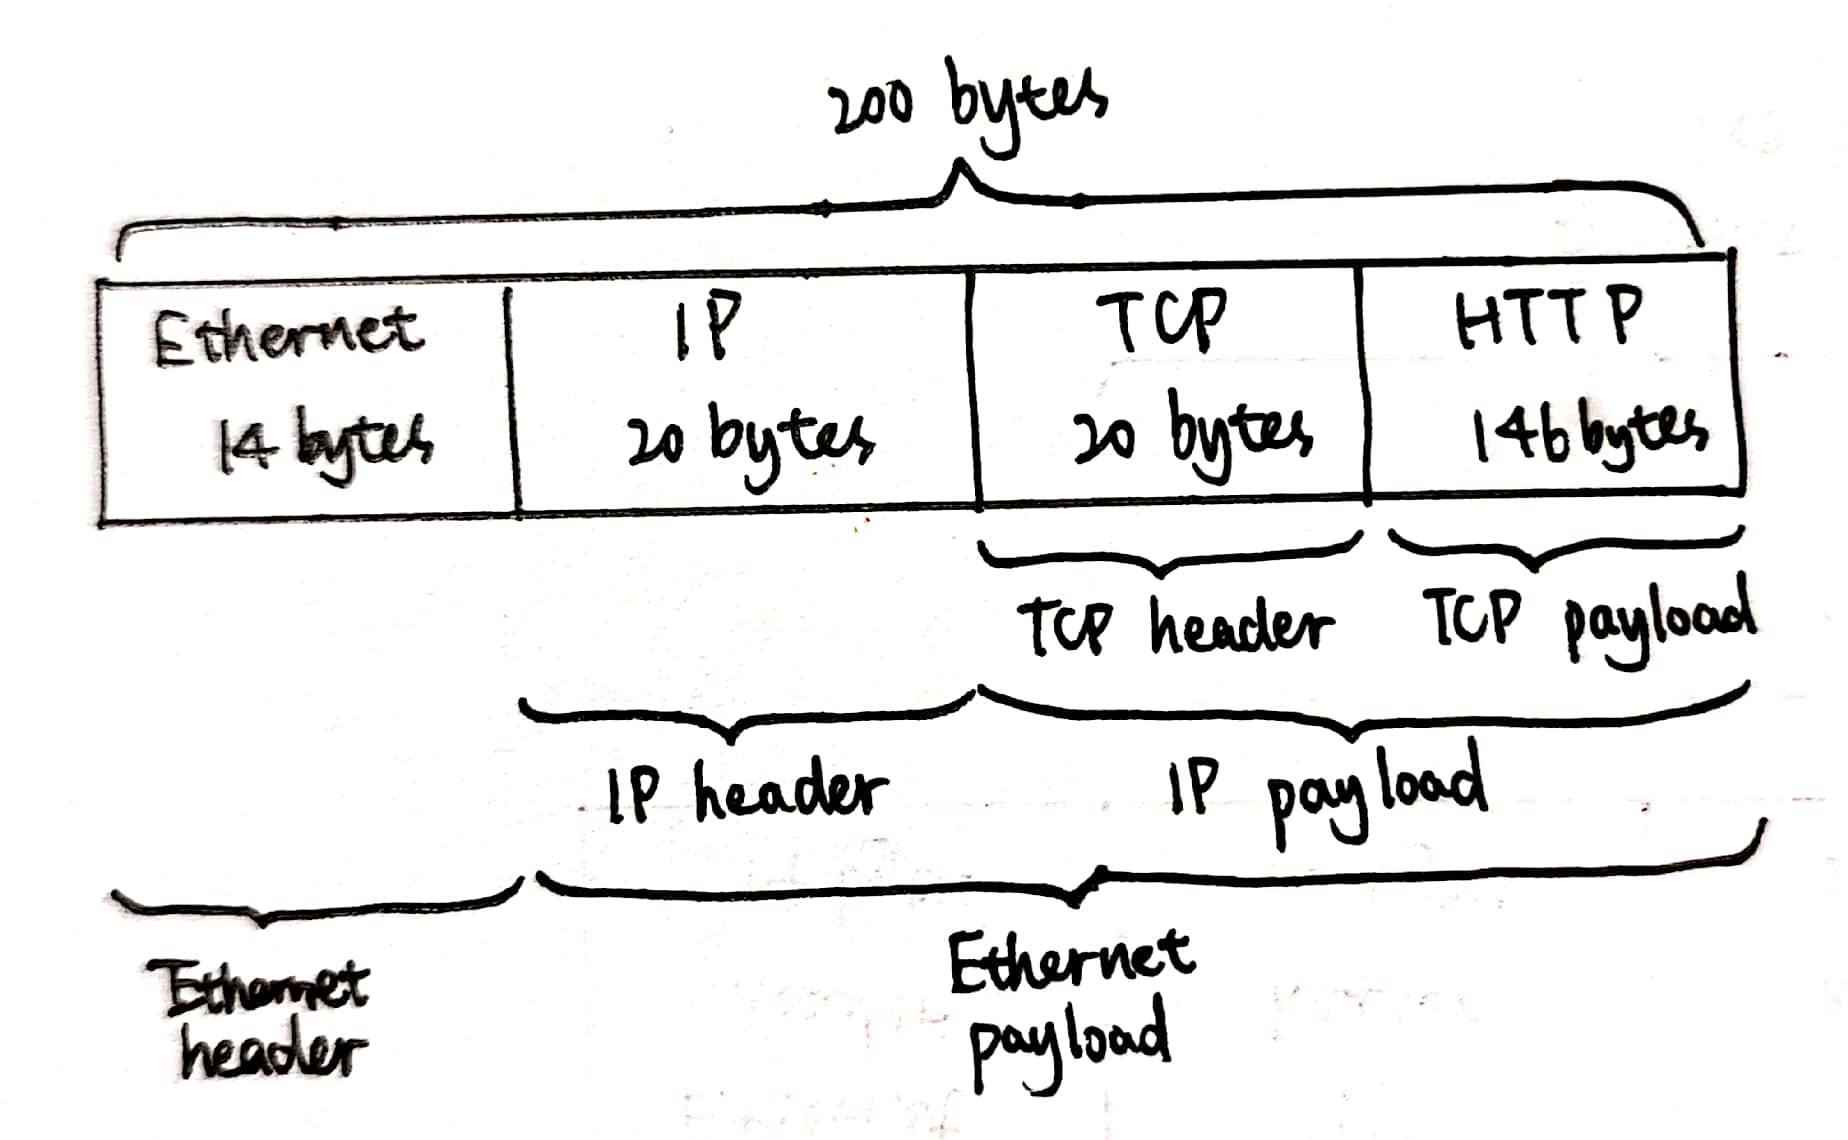 200 bytes
Ethernet IP TCP HTTP
14 bytes 20 bytes 20 bytes 146 bytes
TCP header TCP payload
IP header IP payload
Ethernet header
Ethernet payload